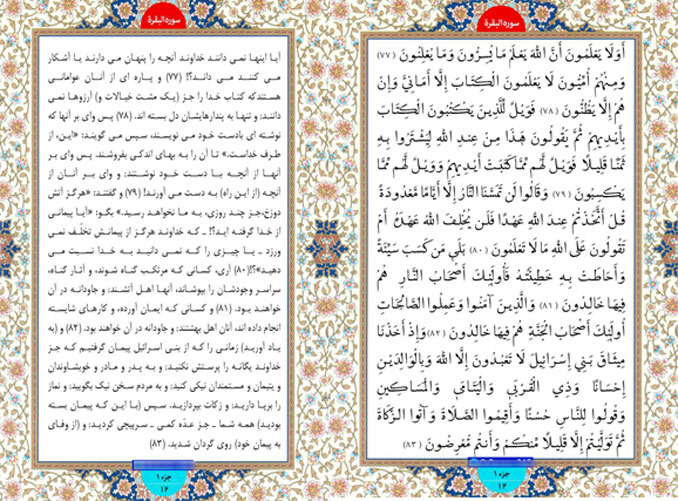 سورهالبقرة
أَوَلَا يَعْلَمُونَ أَنَّ اللَّهَ يَعْلَمُ مَا يُسِرُّونَ وَمَا يُعْلِنُونَ (۷۷)
وَمِنْهُمْ أُمِّيُّونَ لَا يَعْلَمُونَ الْكِتَابَ إِلَّا أَمَانِيَّ وَإِنْ
هُمْ إِلَّا يَظُنُّونَ (۷۸) فَوَيْلٌ لِلَّذِينَ يَكْتُبُونَ الْكِتَابَ
بِأَيْدِيهِمْ ثُمَّ يَقُولُونَ هَذَا مِنْ عِنْدِ اللَّهِ لِيَشْتَرُوا بِهِ
ثَمَنًا قَلِيلًا فَوَيْلٌ لَهُمْ مِمَّا كَتَبَتْ أَيْدِيهِمْ وَوَيْلٌ لَهُمْ مِمَّا
يَكْسِبُونَ (۷۹) وَقَالُوا لَنْ تَمَسَّنَا النَّارُ إِلَّا أَيَّامًا مَعْدُودَةً
قُلْ أَتَّخَذْتُمْ عِنْدَ اللَّهِ عَهْدًا فَلَنْ يُخْلِفَ اللَّهُ عَهْدَهُ أَمْ
تَقُولُونَ عَلَى اللَّهِ مَا لَا تَعْلَمُونَ (۸۰) بَلَى مَنْ كَسَبَ سَيِّئَةً
وَأَحَاطَتْ بِهِ خَطِيئَتُهُ فَأُولَئِكَ أَصْحَابُ النَّارِ هُمْ
فِيهَا خَالِدُونَ (۸۱) وَالَّذِينَ آمَنُوا وَعَمِلُوا الصَّالِحَاتِ
أُولَئِكَ أَصْحَابُ الْجَنَّةِ هُمْ فِيهَا خَالِدُونَ (۸۲) وَإِذْ أَخَذْنَا
مِيثَاقَ بَنِي إِسْرَائِيلَ لَا تَعْبُدُونَ إِلَّا اللَّهَ وَبِالْوَالِدَيْنِ
إِحْسَانًا وَذِي الْقُرْبَى وَالْيَتَامَى وَالْمَسَاكِينِ
وَقُولُوا لِلنَّاسِ حُسْنًا وَأَقِيمُوا الصَّلَاةَ وَآتُوا الزَّكَاةَ
ثُمَّ تَوَلَّيْتُمْ إِلَّا قَلِيلًا مِنْكُمْ وَأَنْتُمْ مُعْرِضُونَ (۸۳)
جزء۱
۱۳
سورهالبقرة
آیا اینها نمی دانند خداوند آنچه را پنهان می دارند یا آشکار
می کنند می داند؟! (۷۷) و پاره ای از آنان عوامانی
هستندکه کتاب خدا را جز (یک مشت خیالات و) آرزوها نمی
دانند؛ و تنها به پندارهایشان دل بسته اند. (۷۸) پس وای بر آنها که
نوشته ای بادست خود می نویسند، سپس می گویند: «این، از
طرف خداست.» تا آن را به بهای اندکی بفروشند. پس وای بر
آنها از آنچه با دست خود نوشتند؛ و وای بر آنان از
آنچه (از این راه) به دست می آورند! (۷۹) و گفتند: «هرگز آتش
دوزخ،جز چند روزی، به ما نخواهد رسید.» بگو: «آیا پیمانی
از خدا گرفته اید؟! ـ که خداوند هرگز از پیمانش تخلّف نمی
ورزد ـ یا چیزی را که نمی دانید به خدا نسبت می
دهید»؟!(۸۰) آری، کسانی که مرتکب گناه شوند، و آثار گناه،
سراسر وجودشان را بپوشاند، آنها اهل آتشند؛ و جاودانه در آن
خواهند بود. (۸۱) و کسانی که ایمان آورده، و کارهای شایسته
انجام داده اند، آنان اهل بهشتند؛ و جاودانه در آن خواهند بود. (۸۲) و (به
یاد آورید) زمانی را که از بنی اسرائیل پیمان گرفتیم که جز
خداوند یگانه را پرستش نکنید؛ و به پدر و مادر و خویشاوندان
و یتیمان و مستمندان نیکی کنید؛ و به مردم سخن نیک بگویید؛ و نماز
را برپا دارید؛ و زکات بپردازید. سپس (با این که پیمان بسته
بودید) همه شما ـ جز عدّه کمی ـ سرپیچی کردید؛ و (از وفای
به پیمان خود) روی گردان شدید. (۸۳)
جزء۱
۱۲